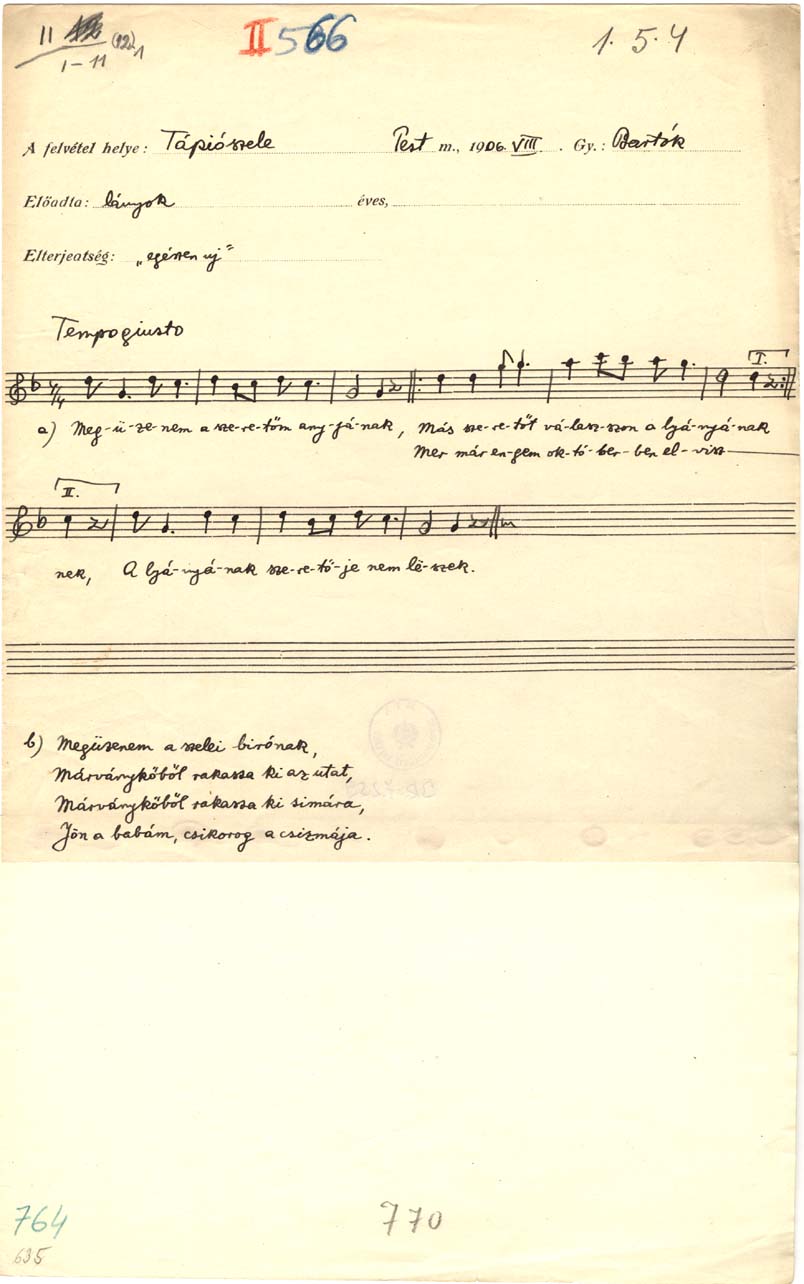 II (12) 1
1-11
II 566
1. 5. 4
A felvétel helye: Tápiószele Pest m., 1906. VIII. Gy.: Bartók
Előadta: lányok éves,
Elterjeatség: „egészen uj"
Tempo giusto
I.
a) Meg-ü-ze-nem a sze-re-tőm any-já-nak, Más sze-re-tőt vá-lasz-szon a lyá-nyá-nak
Mer már en-gem ok-tó-ber-ben el-visz-
II.
nek, A lyá-nyá-nak sze-re-tő-je nem lë-szek.
b) Megüzenem a szelei birónak,
Márványkőből rakassa ki az utat,
Márványkőből rakassa ki simára,
Jön a babám, csikorog a csizmája.
764
770
635